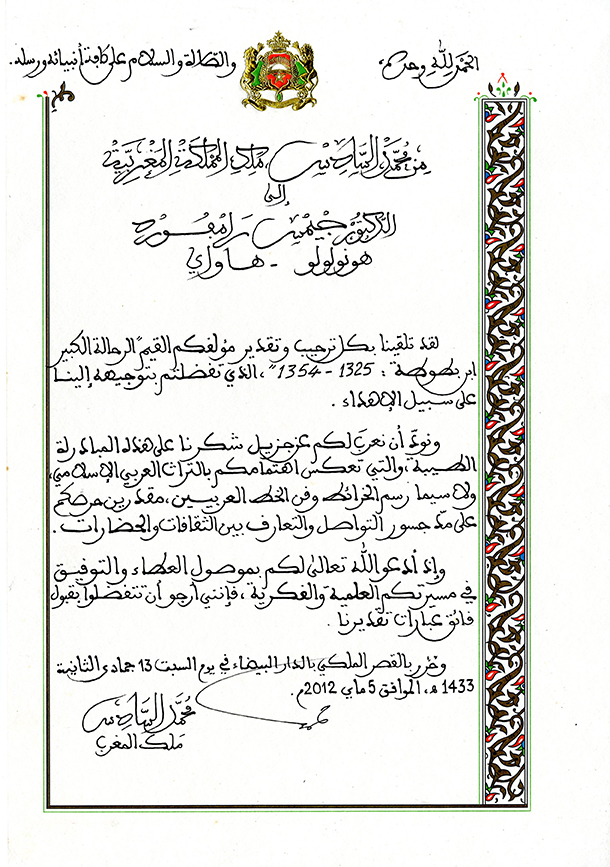 الحمد لله وحده، والصلاة والسلام على كافة أنبيائه ورسله.
من محمد السادس، ملك المملكة المغربية
إلى
الدكتور جيمس رامفورد
هونولولو - هاواي
لقد تلقينا بكل ترحيب وتقدير مؤلفكم القيم "الرحالة الكبير
ابن بطوطة : 1325 - 1354"، الذي تفضلتم بتوجيهه إلينا
على سبيل الإهداء .
ونود أن نعرب لكم عن جزيل شكرنا على هذه المبادرة
الطيبة، والتي تعكس اهتمامكم بالتراث العربي الإسلامي،
ولاسيما رسم الخرائط وفن الخط العربيين، مقدرين حرصكم
على مد جسور التواصل والتعارف بين الثقافات والحضارات .
وإذ أدعو الله تعالى لكم بموصول العطاء والتوفيق
في مسيرتكم العلمية والفكرية، فإنني أرجو أن تتفضلوا بقبول
فائق عبارات تقديرنا .
وحرر بالقصر الملكي بالدار البيضاء في يوم السبت 13 جمادى الثانية
1433 هـ، الموافق 5 ماي 2012م.
محمد السادس
ملك المغرب